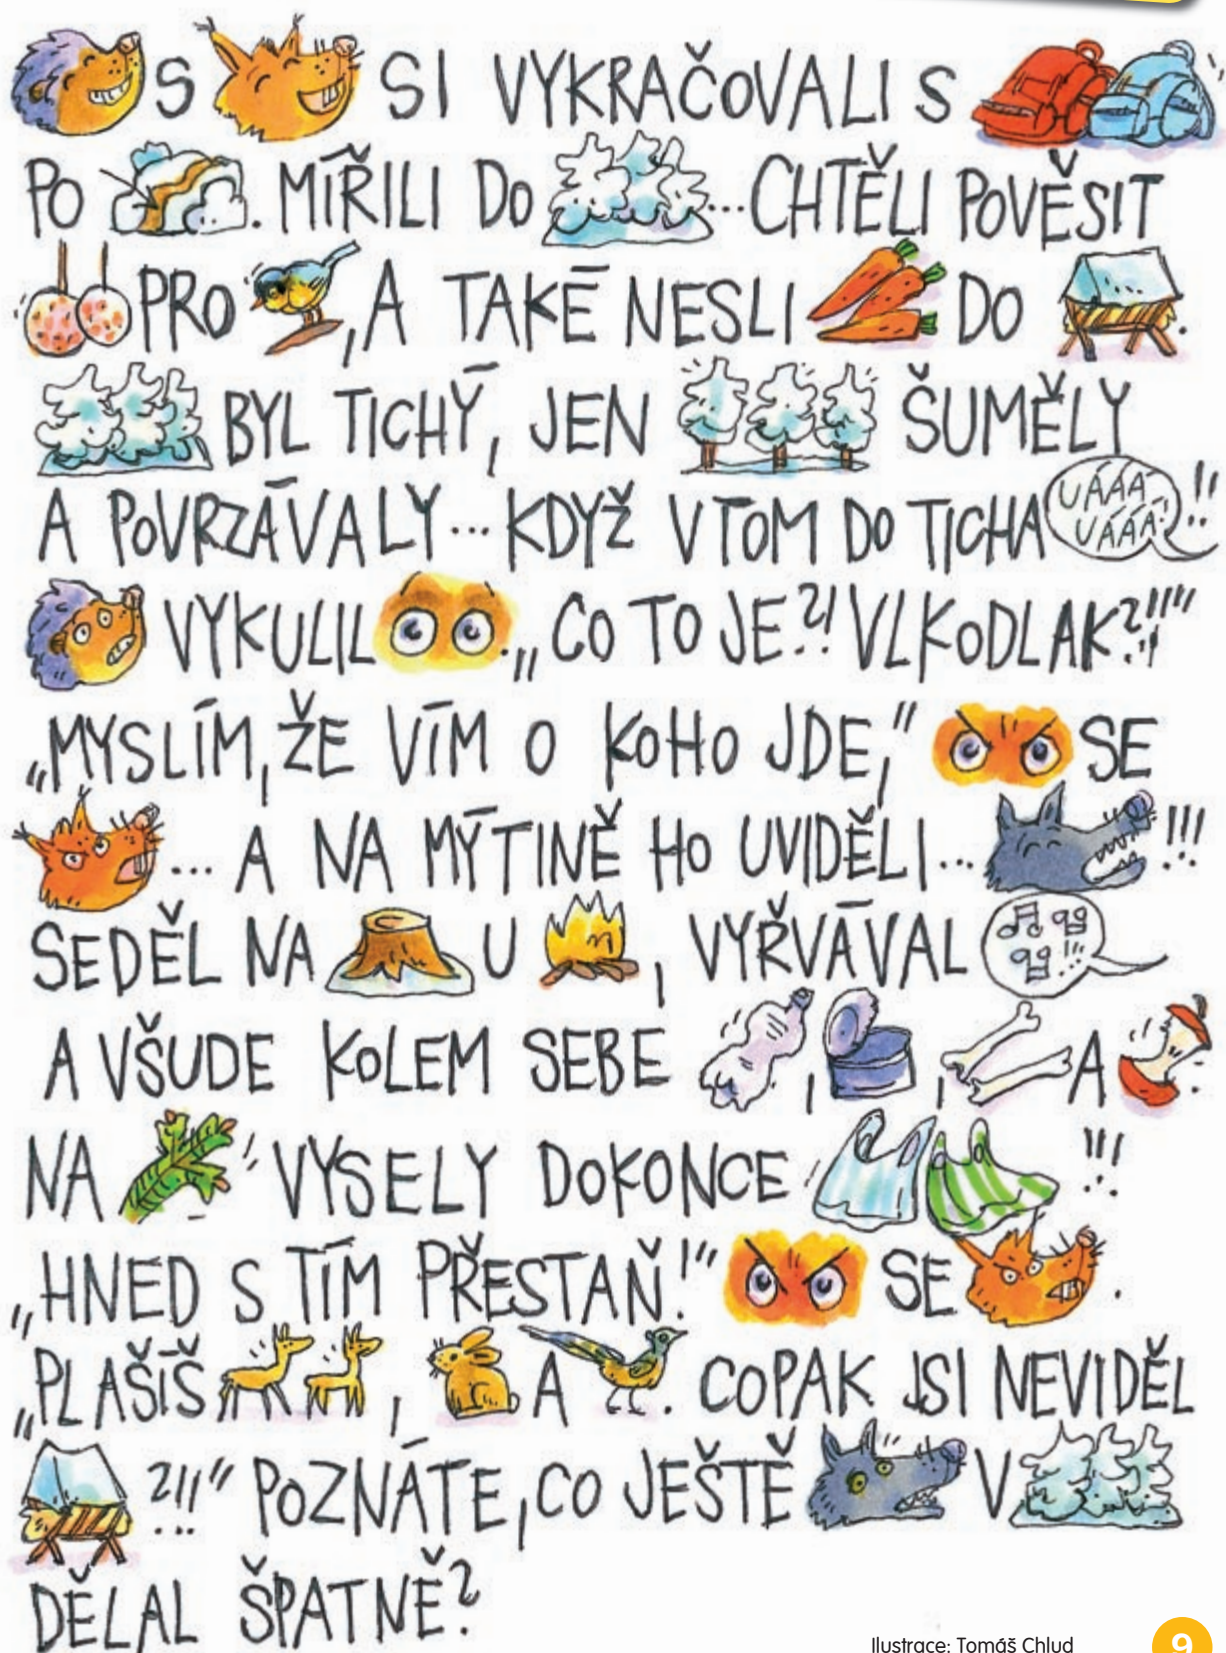 S SI VYKRAČOVALI S
PO . MÍŘILI DO ...CHTĚLI POVĚSIT
PRO , A TAKÉ NESLI DO .
BYL TICHÝ, JEN ŠUMĚLY
A POVRZÁVALY... KDYŽ VTOM DO TICHA UÁÁÁ UÁÁÁ!!
VYKULIL . „CO TO JE?! VLKODLAK?!!"
„MYSLÍM, ŽE VÍM O KOHO JDE," SE
... A NA MÝTINĚ HO UVIDĚLI... !!!
SEDĚL NA U , VYŘVÁVAL !!!
A VŠUDE KOLEM SEBE , , A .
NA VYSELY DOKONCE !!!
„HNED S TÍM PŘESTAŇ!" SE .
„PLAŠÍŠ , A . COPAK JSI NEVIDĚL
?!!" POZNÁTE, CO JEŠTĚ V
DĚLAL ŠPATNĚ?
Ilustrace: Tomáš Chlud
9